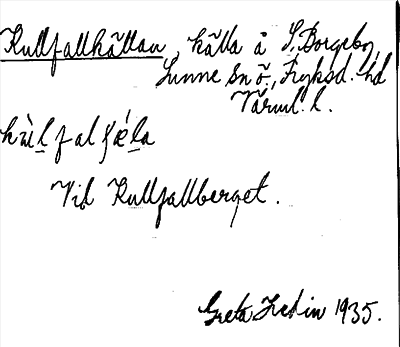 Kullfallkällan, källa å S. Borgeby,
Sunne sn ö., Fryksd. hd
Värml. l.
kùlfalçǽla
Vid Kullfallberget.
Greta Hedin 1935.